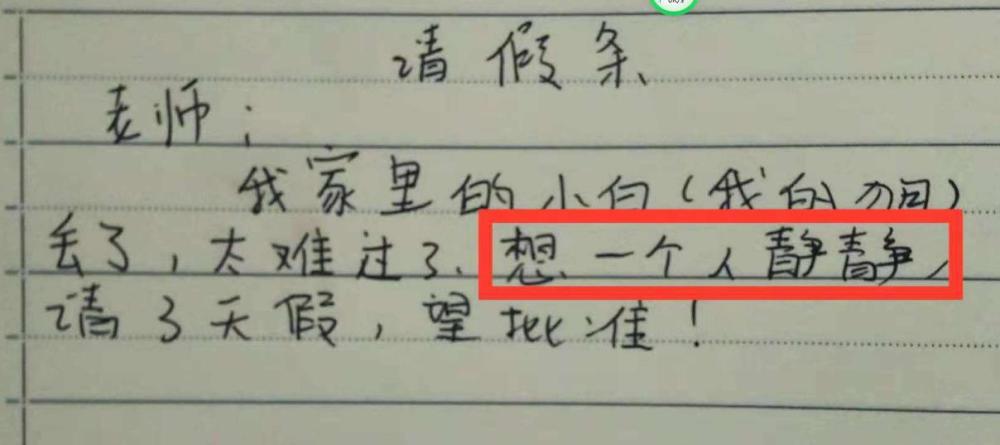 请假条
老师：
我家里的小白（我的狗）
丢了，太难过了、想一个人静静，
请3天假，望批准！